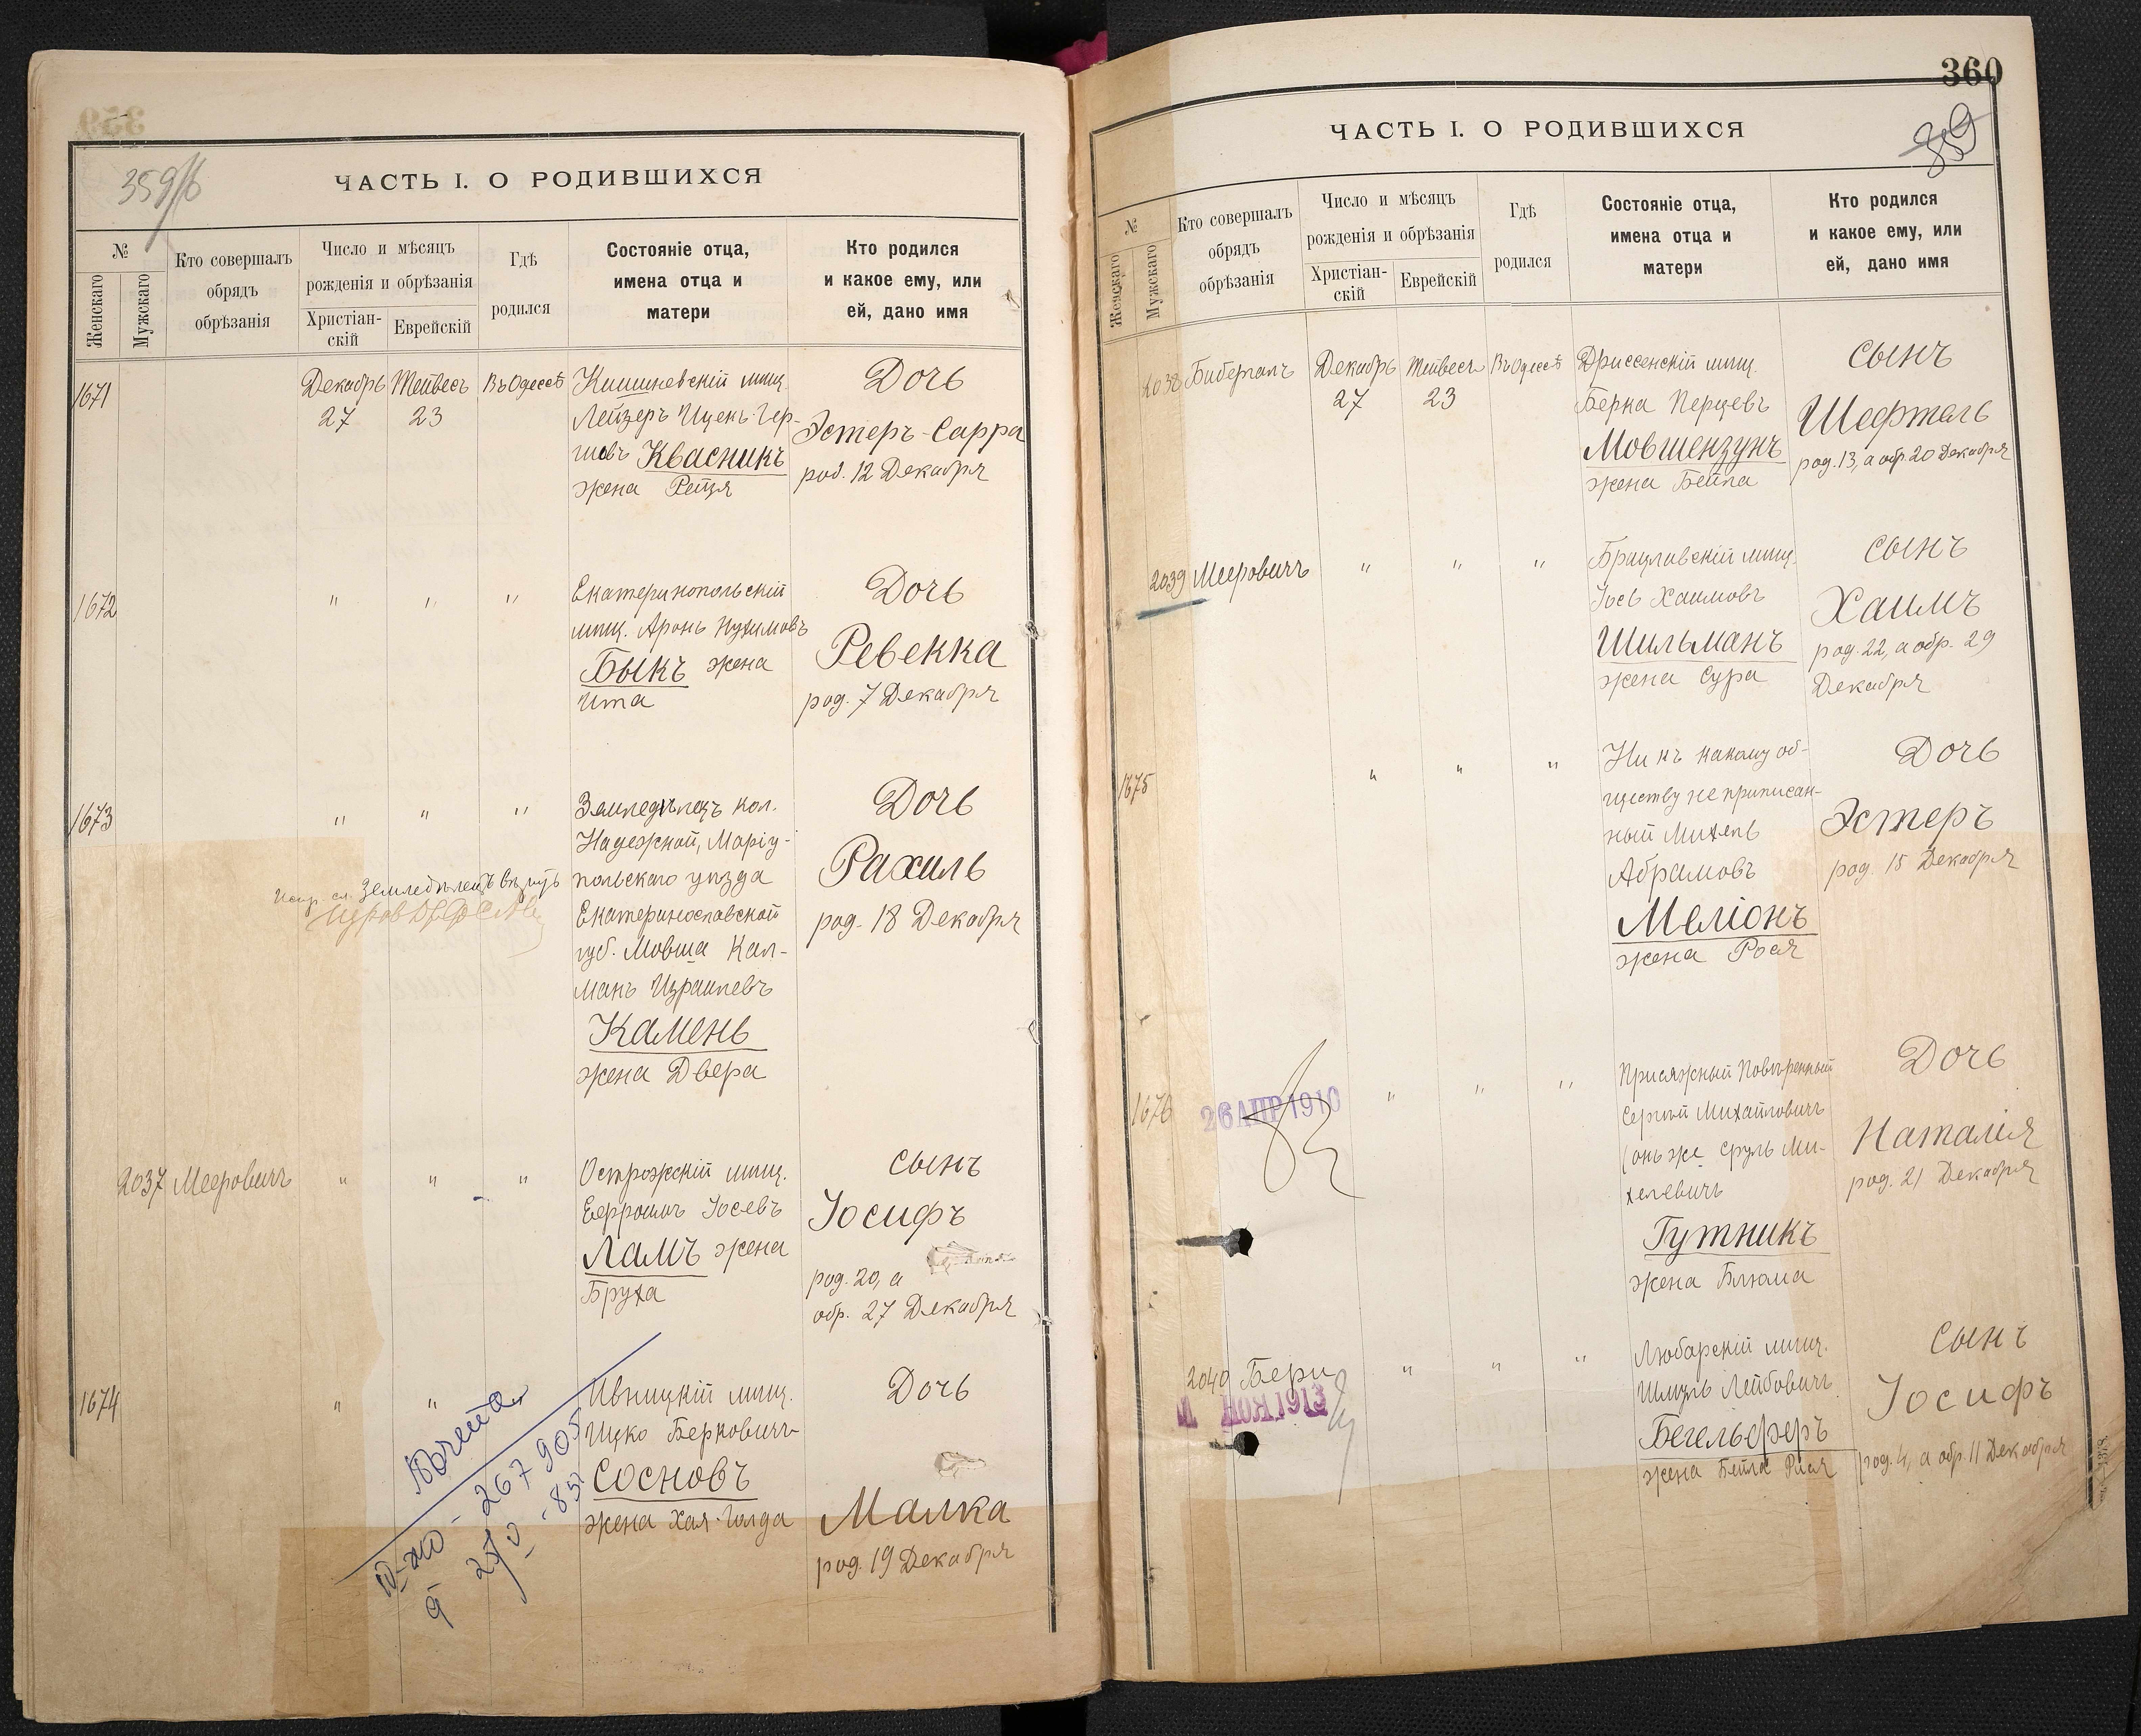 359
359/б
ЧАСТЬ I. О РОДИВШИХСЯ
№
Женскаго
Мужскаго
Кто совершалъ
обрядъ
обрѣзанія
Число и мѣсяцъ
рожденія и обрѣзанія
Христіан-
скій
Еврейскій
Гдѣ
родился
Состояніе отца,
имена отца и
матери
Кто родился
и какое ему, или
ей, дано имя
1671
Декабрь
27
Тейвесъ
23
Въ Одессѣ
Кишиневскій мѣщ.
Лейзеръ Ицекъ-Гер-
шовъ Квасникъ
жена Рейзя
Дочь
Эстеръ-Сарра
род. 12 Декабря
1672
" " "
Екатеринопольскій
мѣщ. Аронъ Нухимовъ
Быкъ жена
Ита
Дочь
Ревекка
род. 7 Декабря
1673
" " "
Испр. сл. Земледѣлецъ вѣрую
Земледѣлецъ кол.
Надежной, Маріу-
польскаго уѣзда
Екатеринославской
губ. Мовша Кал-
манъ Израилевъ
Камень
жена Двера
Дочь
Рахиль
род. 18 Декабря
2037 Мееровичъ
" " "
Острожскій мѣщ.
Іосевъ
Ламъ жена
Бруха
Сынъ
Іосифъ
род. 20, а
обр. 27 Декабря
1674
" "
Ивницкій мѣщ.
Ицко Берковичъ
Сосновъ
жена Хая-Голда
Дочь
Малка
род. 19 Декабря
267905
360
359
ЧАСТЬ I. О РОДИВШИХСЯ
№
Женскаго
Мужскаго
Кто совершалъ
обрядъ
обрѣзанія
Число и мѣсяцъ
рожденія и обрѣзанія
Христіан-
скій
Еврейскій
Гдѣ
родился
Состояніе отца,
имена отца и
матери
Кто родился
и какое ему, или
ей, дано имя
2038 Бибергалъ
Декабрь
27
Тейвесъ
23
Въ Одессѣ
Дриссенскій мѣщ.
Берка Перцевъ
Мовшензунъ
жена Бейла
Сынъ
Шефтель
род. 13, а обр. 20 Декабря
2039 Мееровичъ
" " "
Брацлавскій мѣщ.
Іось Хаимовъ
Шильманъ
жена Сура
Сынъ
Хаимъ
род. 22, а обр. 29
Декабря
1675
" " "
Ни къ какому об-
ществу не приписан-
ный Михель
Абрамовъ
Меліонъ
жена Рося
Дочь
Эстеръ
род. 15 Декабря
1676
26 АПР 1910
" " "
Присяжный Повѣренный
Сергѣй Михайловичъ
(онъ же Сруль Ми-
хелевичъ
Гутникъ
жена Блюма
Дочь
Наталія
род. 21 Декабря
2040 Бери
НОЯ 1913
" " "
Любарскій мѣщ.
Шмуль Лейбовичъ
Бегельферъ
жена Бейла Рися
Сынъ
Іосифъ
род. 4, а обр. 11 Декабря